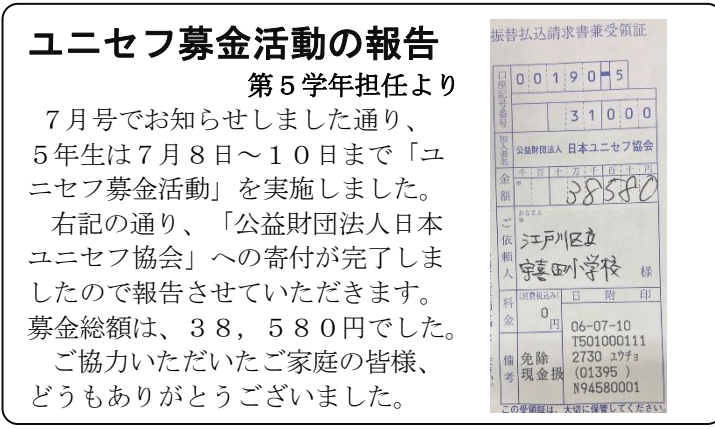 ユニセフ募金活動の報告
第５学年担任より
７月号でお知らせしました通り、
５年生は７月８日～１０日まで「ユ
ニセフ募金活動」を実施しました。
右記の通り、「公益財団法人日本
ユニセフ協会」への寄付が完了しま
したので報告させていただきます。
募金総額は、３８，５８０円でした。
ご協力いただいたご家庭の皆様、
どうもありがとうございました。
振替払込請求書兼受領証
口座記号番号
00190-5
31000
加入者名
公益財団法人 日本ユニセフ協会
金額
千 百 十 万 千 百 十 円
38580
ご依頼人
おなまえ
江戸川区立
宇喜田小学校 様
料金
(消費税込み)
0
円
日 附 印
06-07-10
T501000111
2730 ユウチョ
(01395 )
N94580001
備考
免除
現金扱
この受領証は、大切に保管してください。